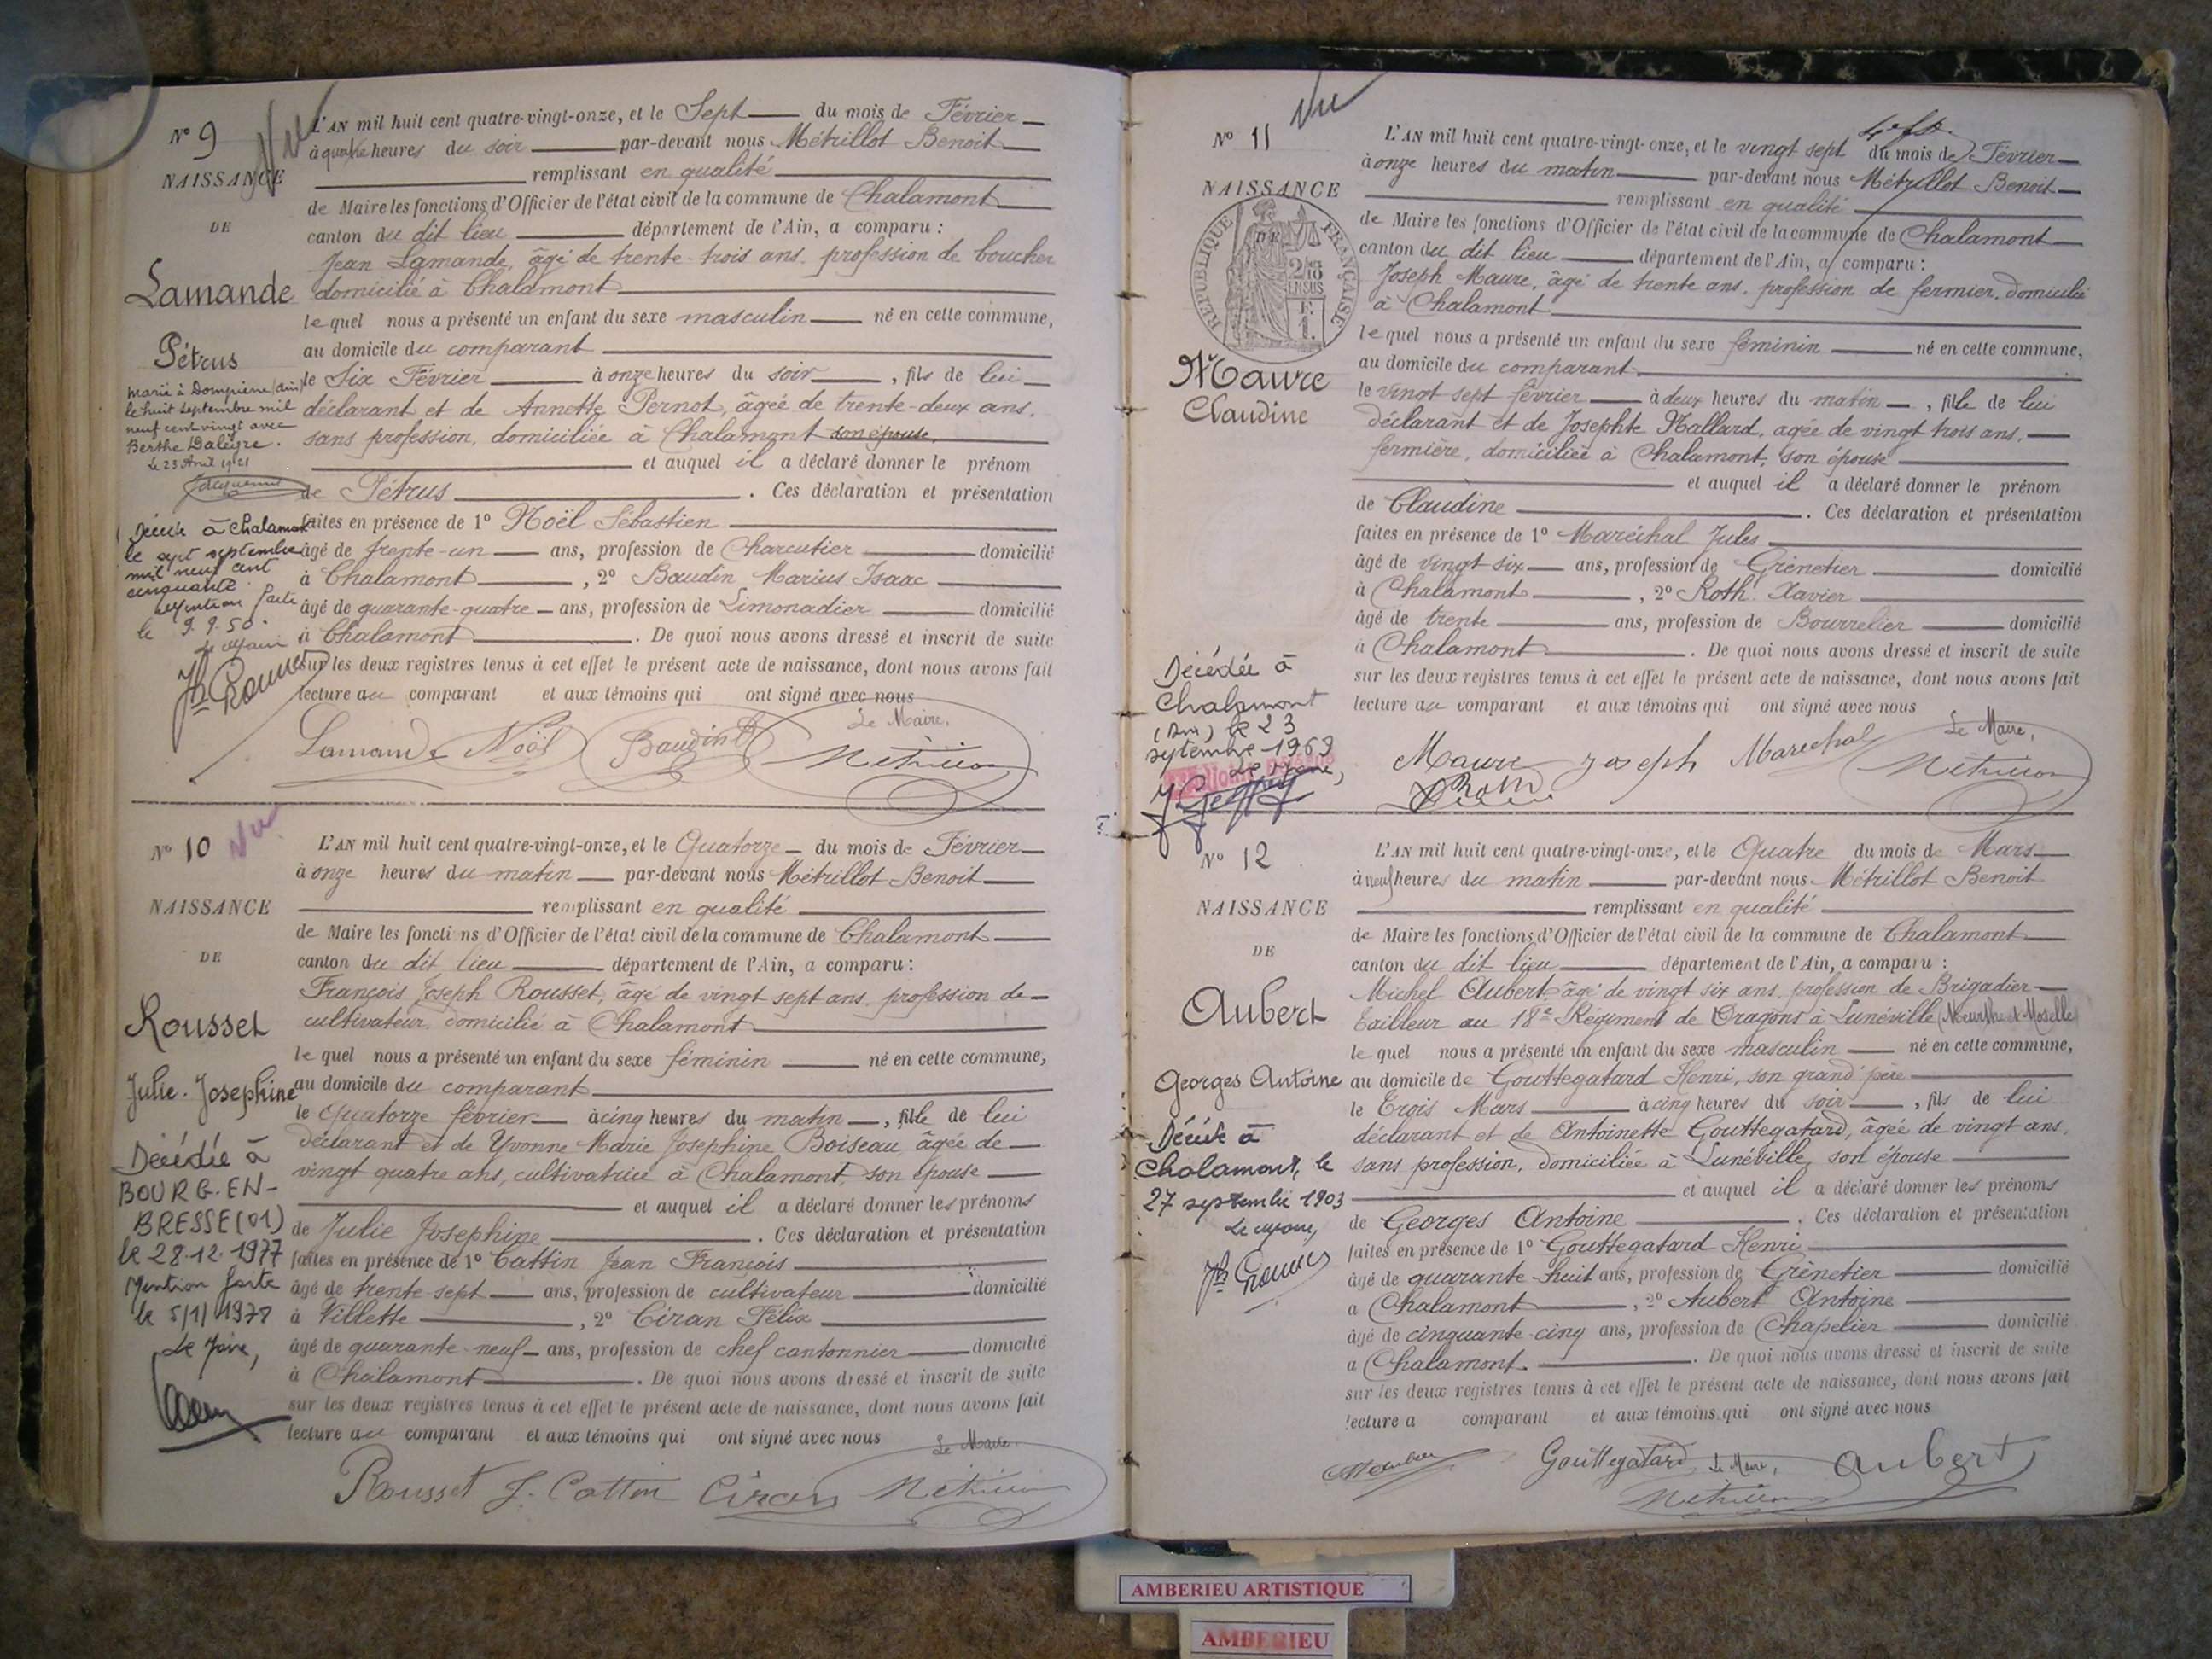 Nº 9
Vu
NAISSANCE
DE
Lamande
Pétrus
marié à Dompierre (Ain)
le huit septembre mil
neuf cent vingt avec
Berthe Dalègre.
le 23 Avril 1921
Décédé à Chalamont
le sept septembre
mil neuf cent
cinquante
Mention faite
le 9.9.50.
Le Maire
L'AN mil huit cent quatre-vingt-onze, et le Sept du mois de Février
à quatre heures du soir par-devant nous Métrillot Benoit
remplissant en qualité
de Maire les fonctions d'Officier de l'état civil de la commune de Chalamont
canton du dit lieu département de l'Ain, a comparu :
Jean Lamande, âgé de trente-trois ans, profession de boucher
domicilié à Chalamont
le quel nous a présenté un enfant du sexe masculin né en cette commune,
au domicile du comparant
le Six Février à onze heures du soir, fils de lui
déclarant et de Annette Pernot, âgée de trente-deux ans,
sans profession, domiciliée à Chalamont son épouse,
et auquel il a déclaré donner le prénom
de Pétrus. Ces déclaration et présentation
faites en présence de 1º Noël Sébastien
âgé de trente-un ans, profession de Charcutier domicilié
à Chalamont, 2º Baudin Marius Isaac
âgé de quarante-quatre ans, profession de Limonadier domicilié
à Chalamont. De quoi nous avons dressé et inscrit de suite
sur les deux registres tenus à cet effet le présent acte de naissance, dont nous avons fait
lecture au comparant et aux témoins qui ont signé avec nous
Le Maire,
Lamande Noël Baudin Métrillot
Nº 10
Vu
NAISSANCE
DE
Rousset
Julie. Josephine
Décédée à
BOURG-EN-
BRESSE (01)
le 28.12.1977
Mention faite
le 5/1/1978
Le Maire,
L'AN mil huit cent quatre-vingt-onze, et le Quatorze du mois de Février
à onze heures du matin par-devant nous Métrillot Benoit
remplissant en qualité
de Maire les fonctions d'Officier de l'état civil de la commune de Chalamont
canton du dit lieu département de l'Ain, a comparu :
François Joseph Rousset, âgé de vingt sept ans, profession de
cultivateur, domicilié à Chalamont
le quel nous a présenté un enfant du sexe féminin né en cette commune,
au domicile du comparant
le Quatorze février à cinq heures du matin, fille de lui
déclarant et de Yvonne Marie Josephine Boiseau âgée de
vingt quatre ans, cultivatrice à Chalamont, son épouse
et auquel il a déclaré donner les prénoms
de Julie Josephine. Ces déclaration et présentation
faites en présence de 1º Cattin Jean François
âgé de trente-sept ans, profession de cultivateur domicilié
à Villette, 2º Ciran Félix
âgé de quarante-neuf ans, profession de chef cantonnier domicilié
à Chalamont. De quoi nous avons dressé et inscrit de suite
sur les deux registres tenus à cet effet le présent acte de naissance, dont nous avons fait
lecture au comparant et aux témoins qui ont signé avec nous
Le Maire
Rousset J. Cattin Ciran Métrillot
Nº 11
Vu
NAISSANCE
DE
RÉPUBLIQUE FRANÇAISE
2/10 EN SUS
Maure
Claudine
Décédée à
Chalamont
(Ain) le 23
septembre 1969
Le Maire,
L'AN mil huit cent quatre-vingt-onze, et le vingt sept du mois de Février
à onze heures du matin par-devant nous Métrillot Benoit
remplissant en qualité
de Maire les fonctions d'Officier de l'état civil de la commune de Chalamont
canton du dit lieu département de l'Ain, a comparu :
Joseph Maure, âgé de trente ans, profession de fermier, domicilié
à Chalamont
le quel nous a présenté un enfant du sexe féminin né en cette commune,
au domicile du comparant
le vingt sept février à deux heures du matin, fille de lui
déclarant et de Josephte Hallard, agée de vingt trois ans,
fermière, domiciliée à Chalamont, son épouse
et auquel il a déclaré donner le prénom
de Claudine. Ces déclaration et présentation
faites en présence de 1º Maréchal Jules
âgé de vingt six ans, profession de Grènetier domicilié
à Chalamont, 2º Roth Xavier
âgé de trente ans, profession de Bourrelier domicilié
à Chalamont. De quoi nous avons dressé et inscrit de suite
sur les deux registres tenus à cet effet le présent acte de naissance, dont nous avons fait
lecture au comparant et aux témoins qui ont signé avec nous
Le Maire,
Maure Joseph Marechal Métrillot
Roth
Nº 12
NAISSANCE
DE
Aubert
Georges Antoine
Décédé à
Chalamont, le
27 septembre 1903
Le Maire,
L'AN mil huit cent quatre-vingt-onze, et le Quatre du mois de Mars
à neuf heures du matin par-devant nous Métrillot Benoit
remplissant en qualité
de Maire les fonctions d'Officier de l'état civil de la commune de Chalamont
canton du dit lieu département de l'Ain, a comparu :
Michel Aubert, âgé de vingt six ans, profession de Brigadier
tailleur au 18e Régiment de Dragons à Lunéville (Meurthe et Moselle)
le quel nous a présenté un enfant du sexe masculin né en cette commune,
au domicile de Gouttegatard Henri, son grand père
le Trois Mars à cinq heures du soir, fils de lui
déclarant et de Antoinette Gouttegatard, âgée de vingt ans,
sans profession, domiciliée à Lunéville, son épouse
et auquel il a déclaré donner les prénoms
de Georges Antoine. Ces déclaration et présentation
faites en présence de 1º Gouttegatard Henri
âgé de quarante-huit ans, profession de Grènetier domicilié
à Chalamont, 2º Aubert Antoine
âgé de cinquante-cinq ans, profession de Chapelier domicilié
à Chalamont. De quoi nous avons dressé et inscrit de suite
sur les deux registres tenus à cet effet le présent acte de naissance, dont nous avons fait
lecture a comparant et aux témoins qui ont signé avec nous
Gouttegatard Le Maire, Aubert
Métrillot
AMBERIEU ARTISTIQUE
AMBERIEU